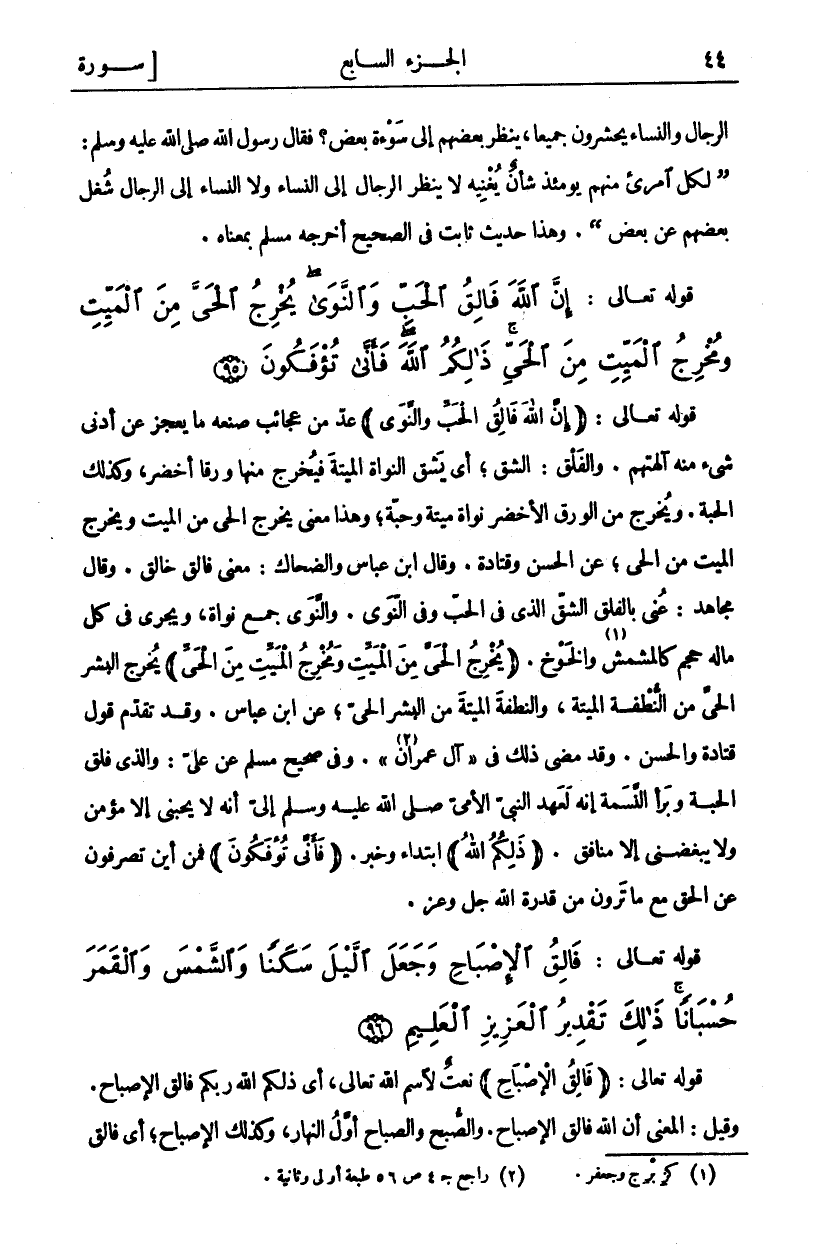 ٤٤ الجزء السابع [ سورة
الرجال والنساء يحشرون جميعا، ينظر بعضهم إلى سَوْءة بعض؟ فقال رسول الله صلى الله عليه وسلم :
” لكل آمرئ منهم يومئذ شأنٌ يُغْنِيه لا ينظر الرجال إلى النساء ولا النساء إلى الرجال شُغل
بعضهم عن بعض “ . وهذا حديث ثابت فى الصحيح أخرجه مسلم بمعناه .
قوله تعالى : إِنَّ ٱللَّهَ فَالِقُ ٱلْحَبِّ وَٱلنَّوَىٰ ۖ يُخْرِجُ ٱلْحَىَّ مِنَ ٱلْمَيِّتِ
وَمُخْرِجُ ٱلْمَيِّتِ مِنَ ٱلْحَىِّ ۚ ذَٰلِكُمُ ٱللَّهُ ۖ فَأَنَّىٰ تُؤْفَكُونَ ﴿٩٥﴾
قوله تعالى : ﴿ إِنَّ اللهَ فَالِقُ الْحَبِّ وَالنَّوَى ﴾ عدّ من عجائب صنعه ما يعجز عن أدنى
شىء منه آلهتهم . والفَلْق : الشق ؛ أى يَشق النواة الميتة فيُخرج منها ورقا أخضر، وكذلك
الحبة . ويُخرج من الورق الأخضر نواة ميتة وحبّة؛ وهذا معنى يخرج الحى من الميت ويخرج
الميت من الحى ؛ عن الحسن وقتادة . وقال ابن عباس والضحاك : معنى فالق خالق . وقال
مجاهد : عُنى بالفلق الشقّ الذى فى الحبّ وفى النّوى . والنَّوَى جمع نواة، ويجرى فى كل
ماله حجم كالمشمش(١) والخَوْخ . ﴿ يُخْرِجُ الْحَىَّ مِنَ الْمَيِّتِ وَمُخْرِجُ الْمَيِّتِ مِنَ الْحَىِّ ﴾ يُخرج البشر
الحىَّ من النُّطْفة الميتة ، والنطفةَ الميتةَ من البشر الحىّ ؛ عن ابن عباس . وقد تقدّم قول
قتادة والحسن . وقد مضى ذلك فى « آل عمران(٢) » . وفى صحيح مسلم عن علىّ : والذى فلق
الحبة وبَرأ النَّسَمة إنه لَعهد النبىّ الأمىّ صلى الله عليه وسلم إلىّ أنه لا يحبنى إلا مؤمن
ولا يبغضنى إلا منافق . ﴿ ذَلِكُمُ اللهُ ﴾ ابتداء وخبر . ﴿ فَأَنَّى تُؤْفَكُونَ ﴾ فمن أين تصرفون
عن الحق مع ما تَرون من قدرة الله جل وعز .
قوله تعالى : فَالِقُ ٱلْإِصْبَاحِ وَجَعَلَ ٱلَّيْلَ سَكَنًا وَٱلشَّمْسَ وَٱلْقَمَرَ
حُسْبَانًا ۚ ذَٰلِكَ تَقْدِيرُ ٱلْعَزِيزِ ٱلْعَلِيمِ ﴿٩٦﴾
قوله تعالى : ﴿ فَالِقُ الْإِصْبَاحِ ﴾ نعتٌ لآسم الله تعالى، أى ذلكم الله ربكم فالق الإصباح .
وقيل : المعنى أن الله فالق الإصباح . والصُّبح والصباح أوّلُ النهار، وكذلك الإصباح؛ أى فالق
(١) كزبْرج وجعفر . (٢) راجع جـ ٤ ص ٥٦ طبعة أولى وثانية .